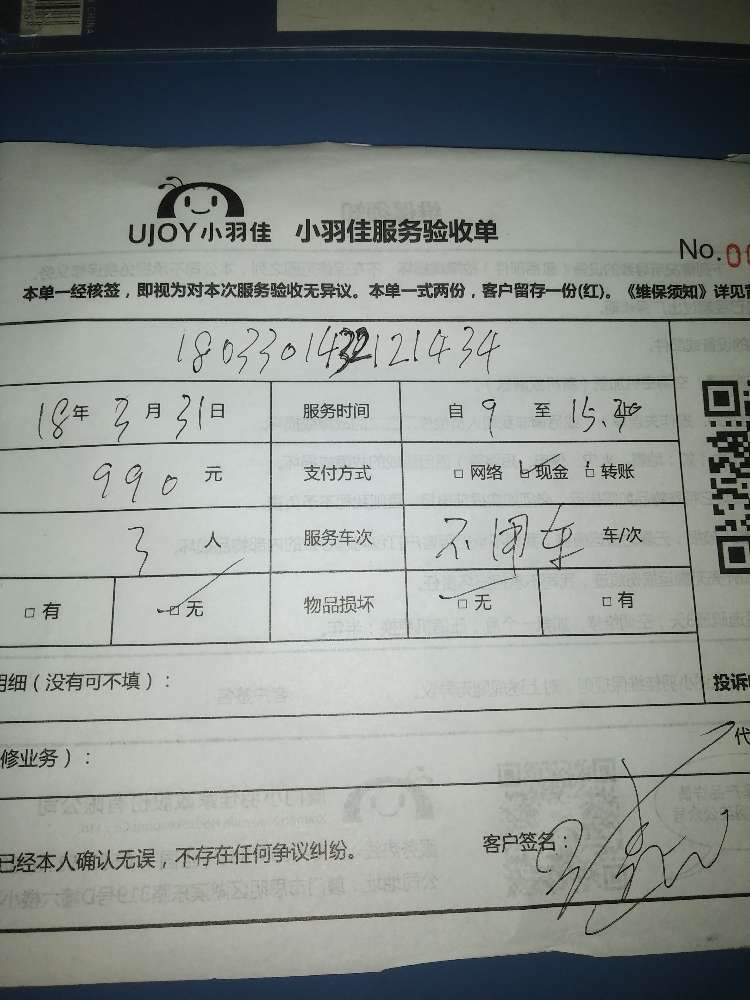 UJOY小羽佳 小羽佳服务验收单
No.
本单一经核签，即视为对本次服务验收无异议。本单一式两份，客户留存一份(红)。《维保须知》详见
18年3月31日 服务时间 自9至15.30
990元 支付方式 □网络 □现金 □转账
3人 服务车次 不用车 车/次
□有 □无 物品损坏 □无 □有
明细（没有可不填）： 投诉
修业务）： 代
已经本人确认无误，不存在任何争议纠纷。 客户签名：